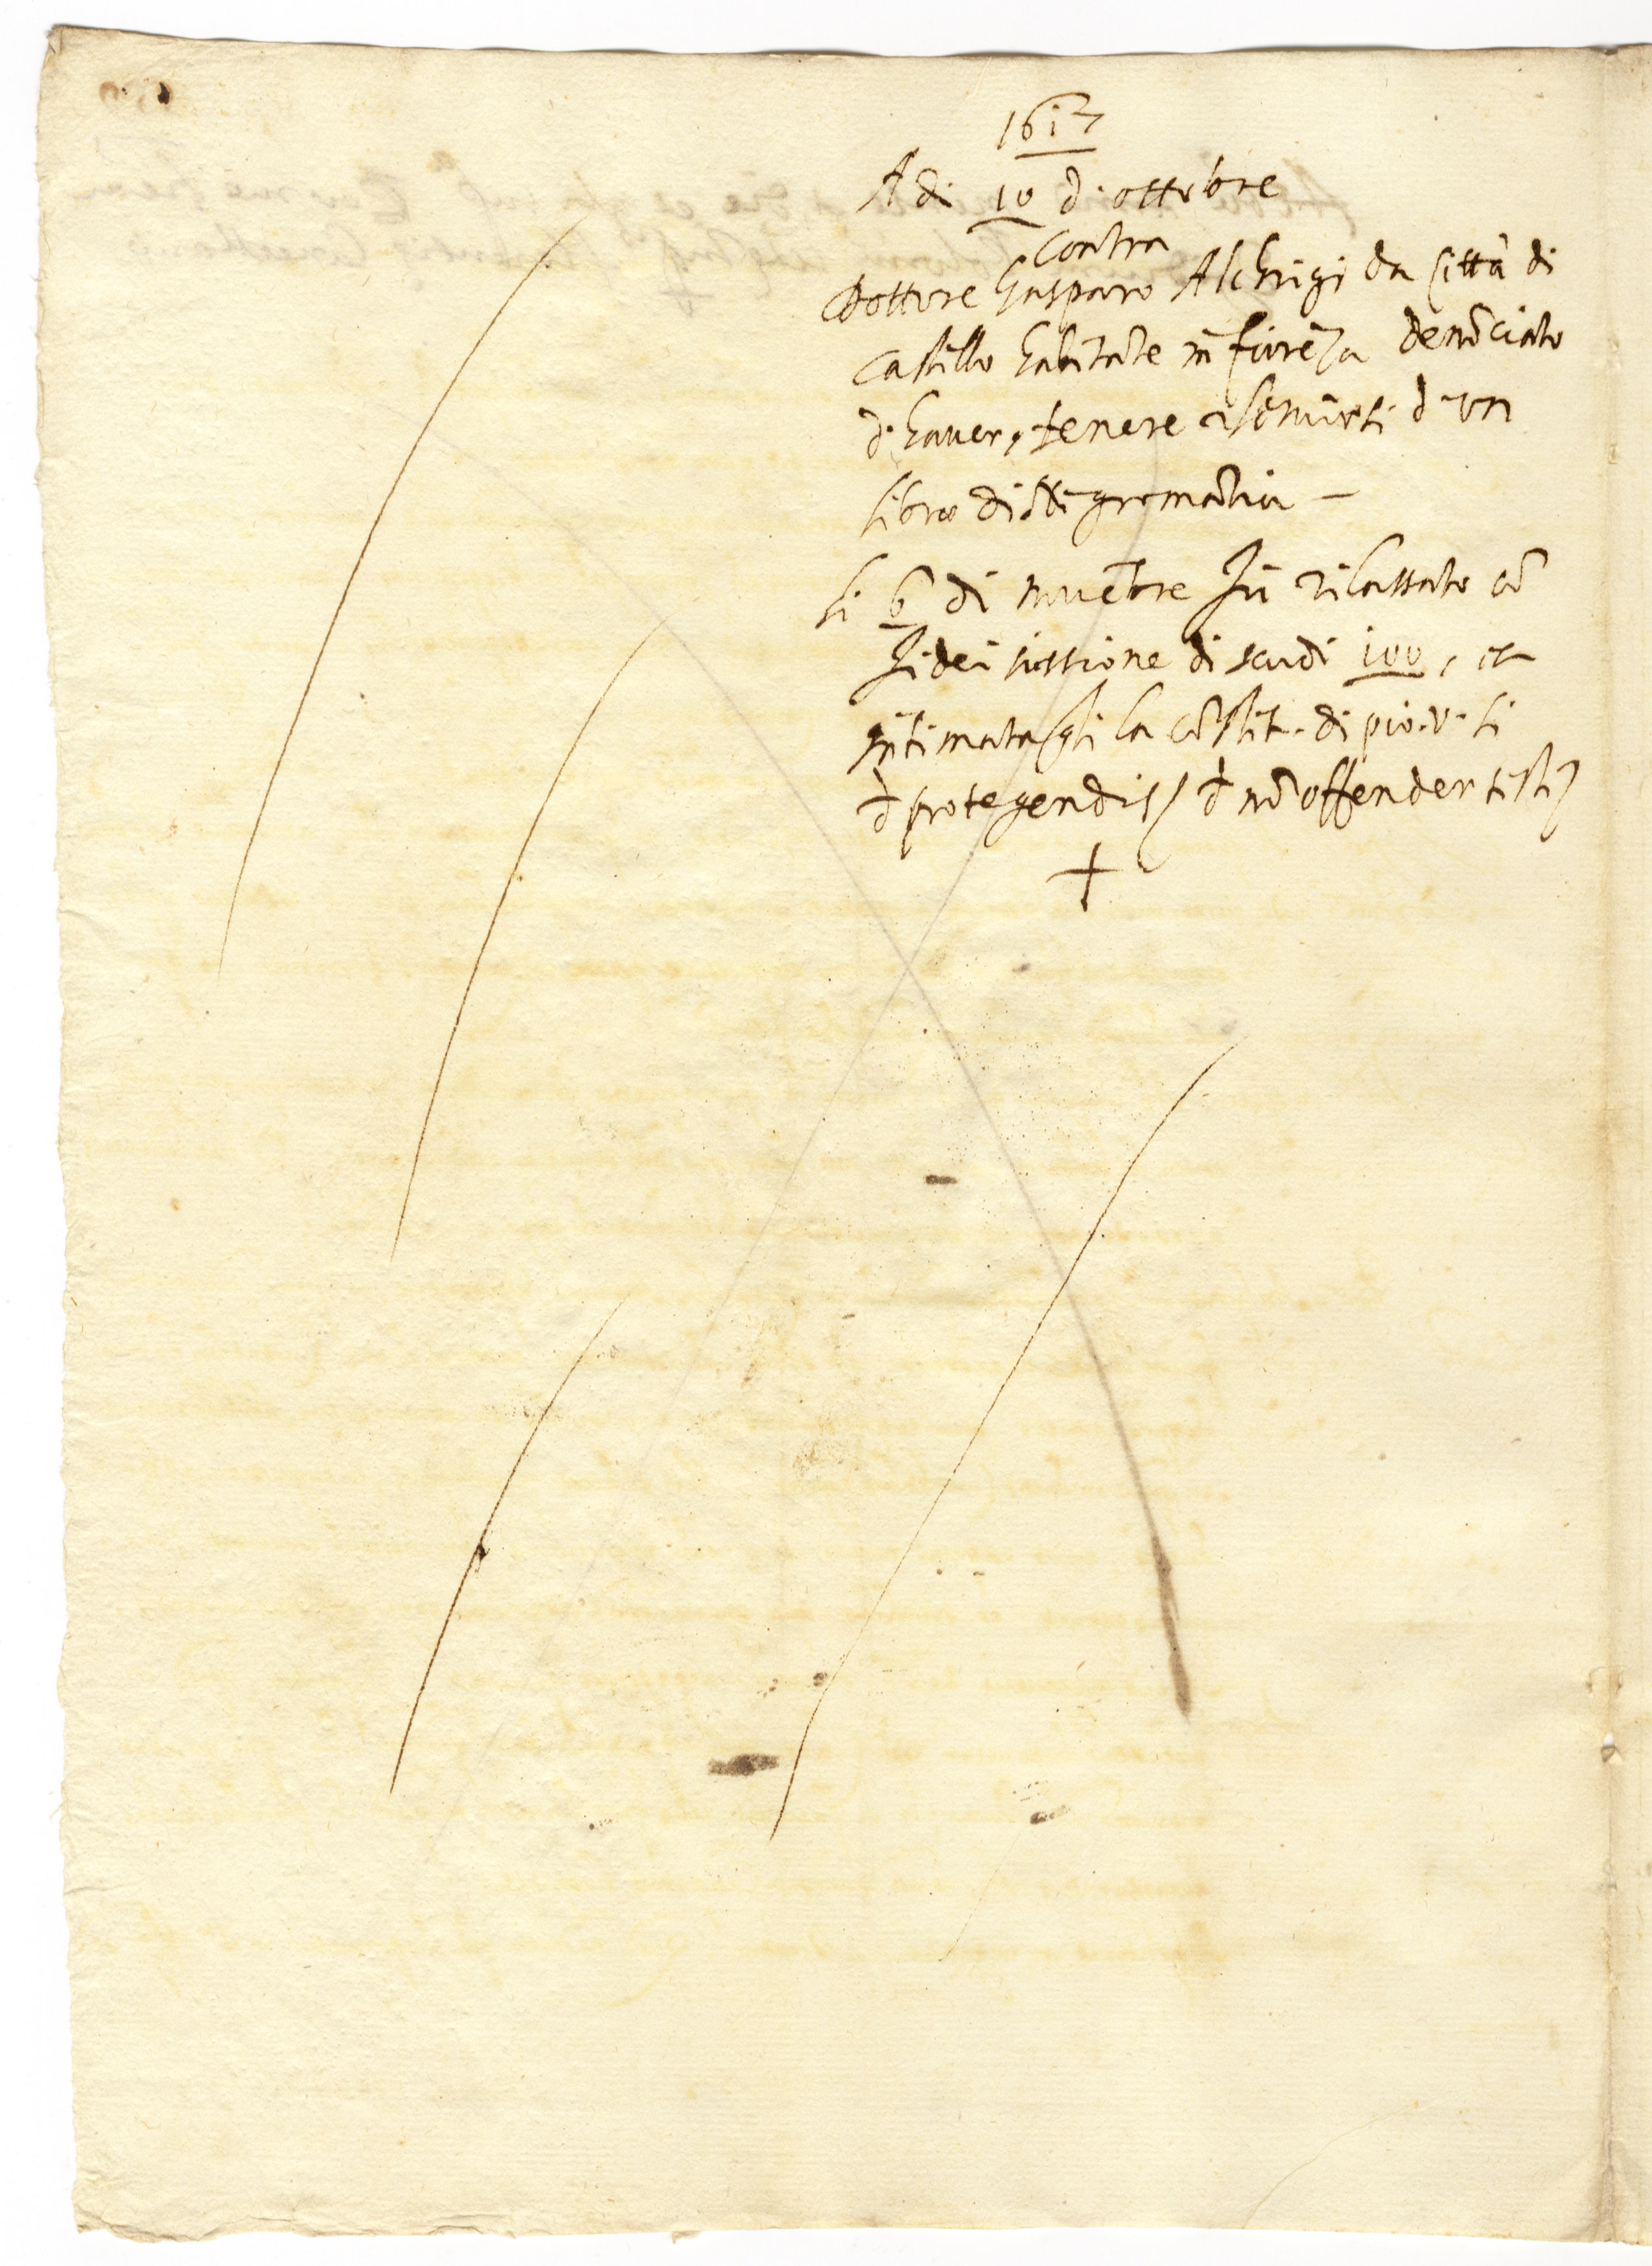 1617
A di 10 d'ottobre
Contra
Dottore Gasparo Alchrigi da Città di
Castillo habitãte in firẽza denõciato
d'haver, tenere et servirsi d'un
libro di negromãtia –
li 6 di novẽbre fù rilassato cõ
fideiussione di scudi 100, et
intimatagli la cõstit. di pio. v. si
d protegendis, d nõ offender testi